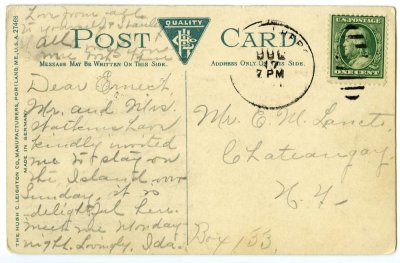 Love from all
all
POST CARD
QUALITY
HLC
MESSAGE MAY BE WRITTEN ON THIS SIDE.
ADDRESS ONLY ON THIS SIDE.
THE HUGH C. LEIGHTON CO., MANUFACTURERS, PORTLAND, ME., U.S.A.
MADE IN GERMANY
7 PM
U.S. POSTAGE
ONE CENT
Dear Ernest
Mr. and Mrs.
Watkins have
kindly invited
me to stay on
the Island over
Sunday, it is
delightful here.
Meet me Monday
night. Lovingly, Ida.
Mr. E. M. Lanct
Chateaugay,
N. Y.
Box 153.